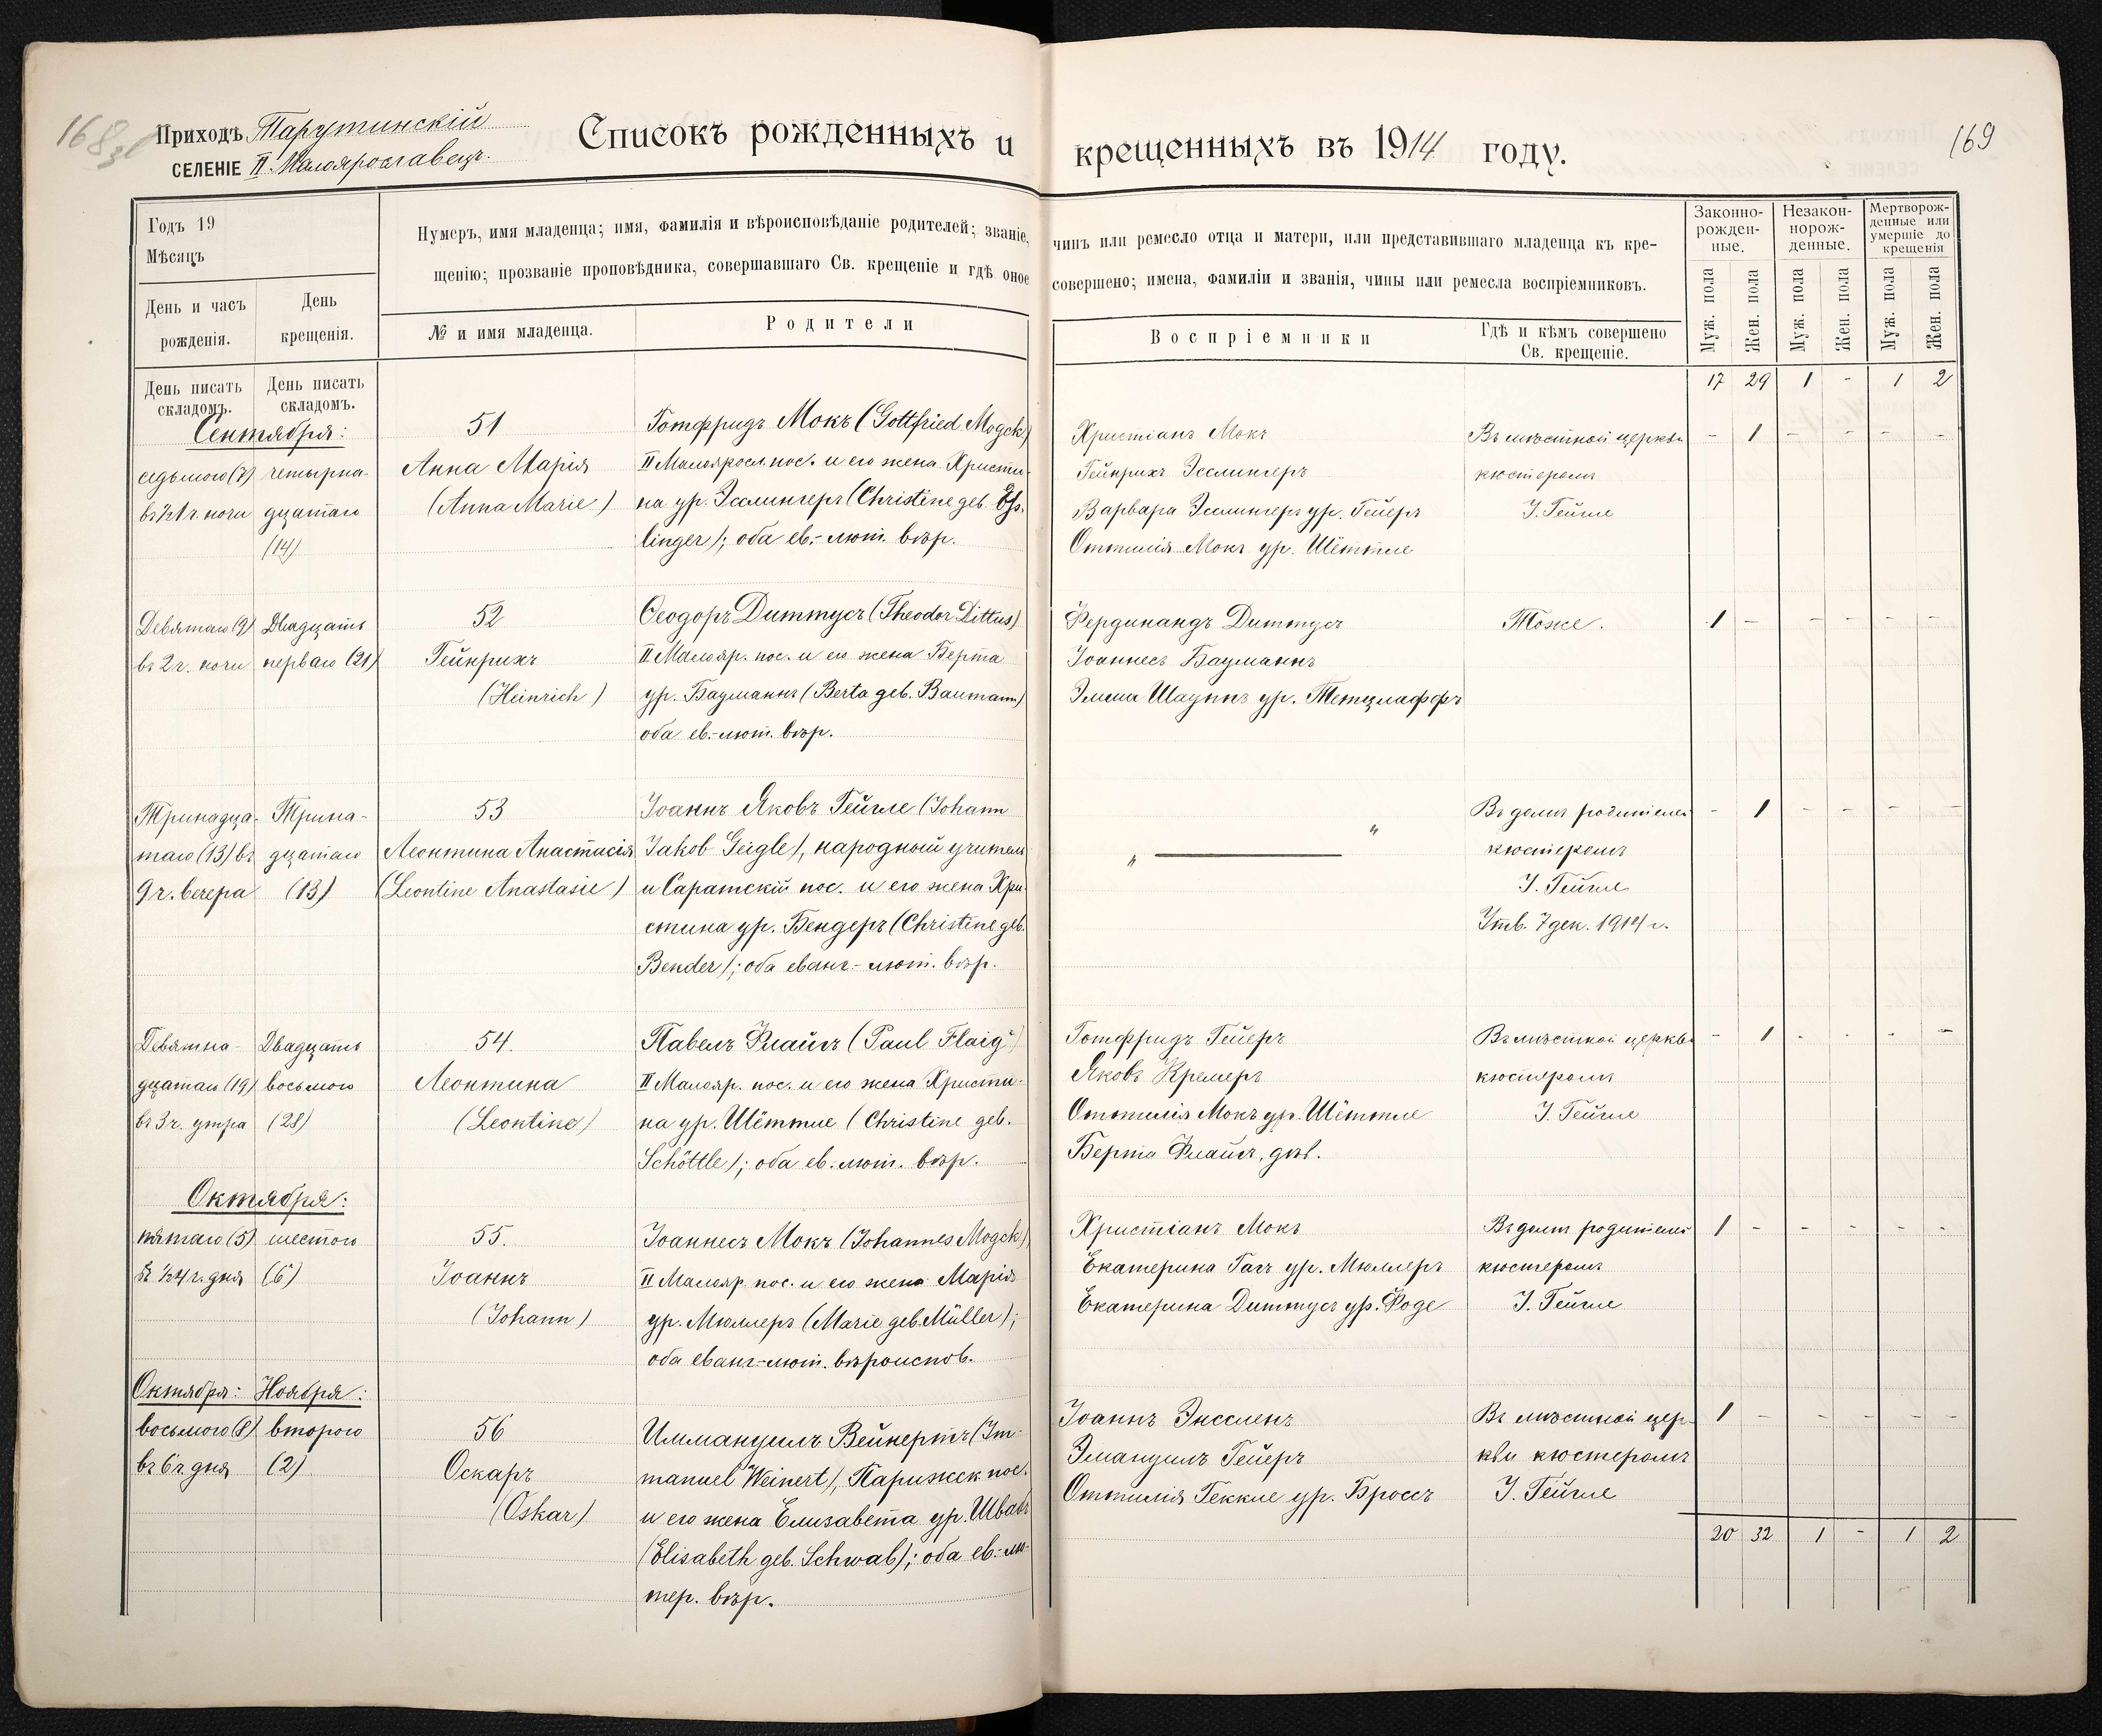 168
Приходъ Тарутинскій
СЕЛЕНІЕ II. Малоярославецъ.
Списокъ рожденныхъ и крещенныхъ въ 1914 году.
169
Годъ 19
Мѣсяцъ
День и часъ рожденія.
День крещенія.
Нумеръ, имя младенца; имя, фамилія и вѣроисповѣданіе родителей; званіе, чинъ или ремесло отца и матери, или представившаго младенца къ кре-
щенію; прозваніе проповѣдника, совершавшаго Св. крещеніе и гдѣ оное совершено; имена, фамиліи и званія, чины или ремесла воспріемниковъ.
№ и имя младенца.
Родители
Воспріемники
Гдѣ и кѣмъ совершено
Св. крещеніе.
Законно-
рожден-
ные.
Незакон-
норож-
денные.
Мертворож-
денные или
умершіе до
крещенія
Муж. пола
Жен. пола
Муж. пола
Жен. пола
Муж. пола
Жен. пола
День писать
складомъ.
День писать
складомъ.
17 29 1 - 1 2
Сентября:
седьмого (7)
въ ½1 ч. ночи
четырна-
дцатаго
(14)
51
Анна Марія
(Anna Marie)
Готфридъ Мокъ (Gottfried Mogck)
II Малояросл. пос. и его жена Христи-
на ур. Эсслингеръ (Christine geb. Ess-
linger); оба ев.-лют. вѣр.
Христіанъ Мокъ
Гейнрихъ Эсслингеръ
Варвара Эсслингеръ ур. Гейеръ
Оттилія Мокъ ур. Шёттле
Въ мѣстной церкви
кюстеромъ
І. Гейгле
- 1 - - - -
Девятаго (9)
въ 2 ч. ночи
Двадцать
перваго (21)
52
Гейнрихъ
(Heinrich)
Ѳеодоръ Диттусъ (Theodor Dittus)
II Малояр. пос. и его жена Берта
ур. Бауманнъ (Berta geb. Baumann)
оба ев.-лют. вѣр.
Фердинандъ Диттусъ
Іоаннесъ Бауманнъ
Эмма Шауппъ ур. Тетцлаффъ
Тоже.
1 - - - - -
Тринадца-
таго (13) въ
9 ч. вечера
Трина-
дцатаго
(13)
53
Леонтина Анастасія
(Leontine Anastasie)
Іоаннъ Яковъ Гейгле (Johann
Jakob Geigle), народный учитель
и Саратскій пос. и его жена Хри-
стина ур. Бендеръ (Christine geb.
Bender); оба еванг.-лют. вѣр.
" "
Въ домѣ родителей
кюстеромъ
І. Гейгле
Утв. 7 дек. 1914 г.
- 1 - - - -
Девятна-
дцатаго (19)
въ 3 ч. утра
Двадцать
восьмого
(28)
54.
Леонтина
(Leontine)
Павелъ Флайгъ (Paul Flaig)
II Малояр. пос. и его жена Христи-
на ур. Шёттле (Christine geb.
Schöttle); оба ев. лют. вѣр.
Готфридъ Гейеръ
Яковъ Кремеръ
Оттилія Мокъ ур. Шёттле
Берта Флайгъ, дѣв.
Въ мѣстной церкви
кюстеромъ
І. Гейгле
- 1 - - - -
Октября:
пятаго (5)
въ ½4 ч. дня
шестого
(6)
55.
Іоаннъ
(Johann)
Іоаннесъ Мокъ (Johannes Mogck),
II Малояр. пос. и его жена Марія
ур. Мюллеръ (Marie geb. Müller);
оба еванг.-лют. вѣроиспов.
Христіанъ Мокъ
Екатерина Гагъ ур. Мюллеръ
Екатерина Диттусъ ур. Роде
Въ домѣ родителей
кюстеромъ
І. Гейгле
1 - - - - -
Октября:
восьмого (8)
въ 6 ч. дня
Ноября:
второго
(2)
56
Оскаръ
(Oskar)
Иммануилъ Вейнертъ (Im-
manuel Weinert), Парижск. пос.
и его жена Елизавета ур. Швабъ
(Elisabeth geb. Schwab); оба ев.-лю-
тер. вѣр.
Іоаннъ Энссленъ
Эмануилъ Гейеръ
Оттилія Геккле ур. Броссъ
Въ мѣстной цер-
кви кюстеромъ
І. Гейгле
1 - - - - -
20 32 1 - 1 2